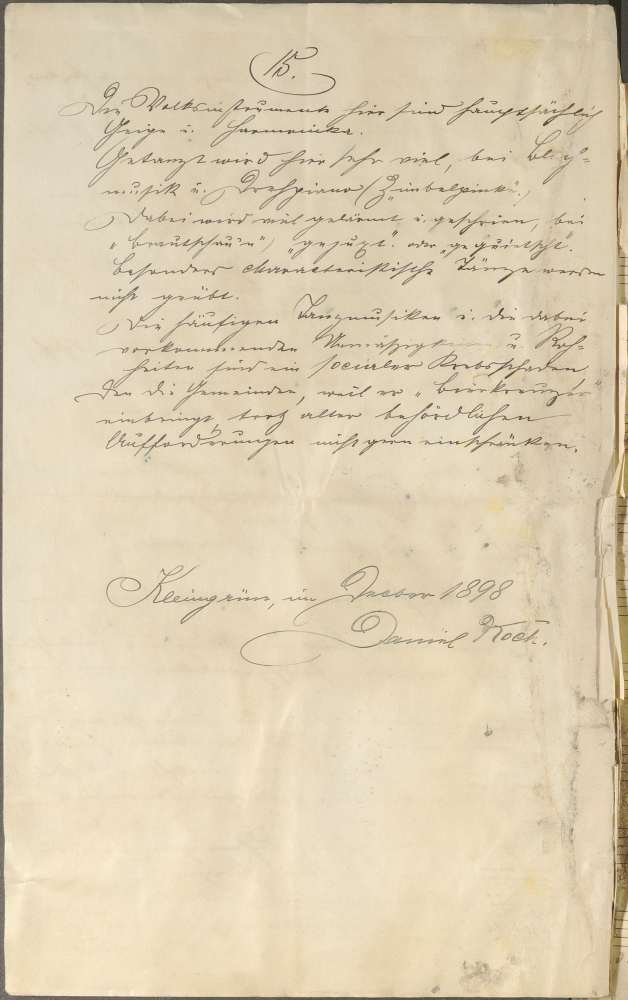 15.
Die Volksinstrumente hier sind hauptsächlich
Geige u. Harmonika.
Getanzt wird hier sehr viel, bei Blech-
musik u. Drehpiano
Dabei wird viel gelärmt u. geschrien, bei
"Brautschau'n", "gejuxt" oder "gequietscht".
Besonders charakteristische Tänze werden
nicht geübt.
Die häufigen Tanzmusiken u. die dabei
vorkommenden u. Roh-
heiten sind ein socialer Krebsschaden
den die Gemeinden, weil er "Bierkreuzer"
einbringt, trotz aller behördlichen
Aufforderungen nicht gern einschränken.
Kleingrün, im Decber 1898
Daniel Kock.